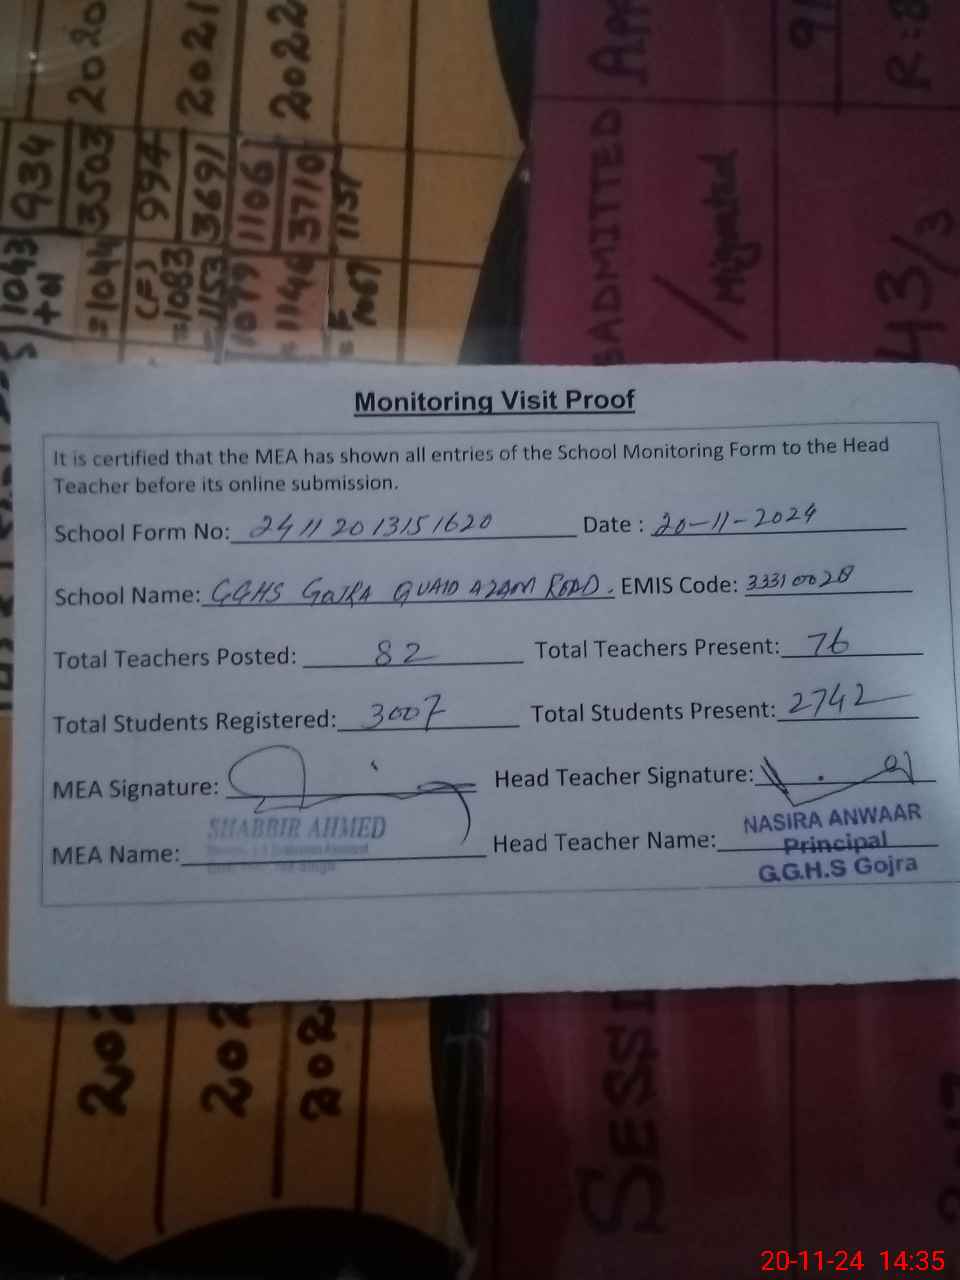 2020
2021
2022
934
3503
994
3691
1106
3710
1137
1043
+N
=1044
(F)
=1083
=1153
1079
1146
=F
1067
ADMITTED
/Migrated
91
43/3
Monitoring Visit Proof
It is certified that the MEA has shown all entries of the School Monitoring Form to the Head
Teacher before its online submission.
School Form No: 24112013151620 Date : 20-11-2024
School Name: GGHS GOJRA QUAID AZAM ROAD. EMIS Code: 33310028
Total Teachers Posted: 82 Total Teachers Present: 76
Total Students Registered: 3007 Total Students Present: 2742
MEA Signature: Head Teacher Signature:
SHABBIR AHMED
MEA Name: Head Teacher Name:
NASIRA ANWAAR
Principal
G.G.H.S Gojra
202
202
202
SESSI
20-11-24 14:35